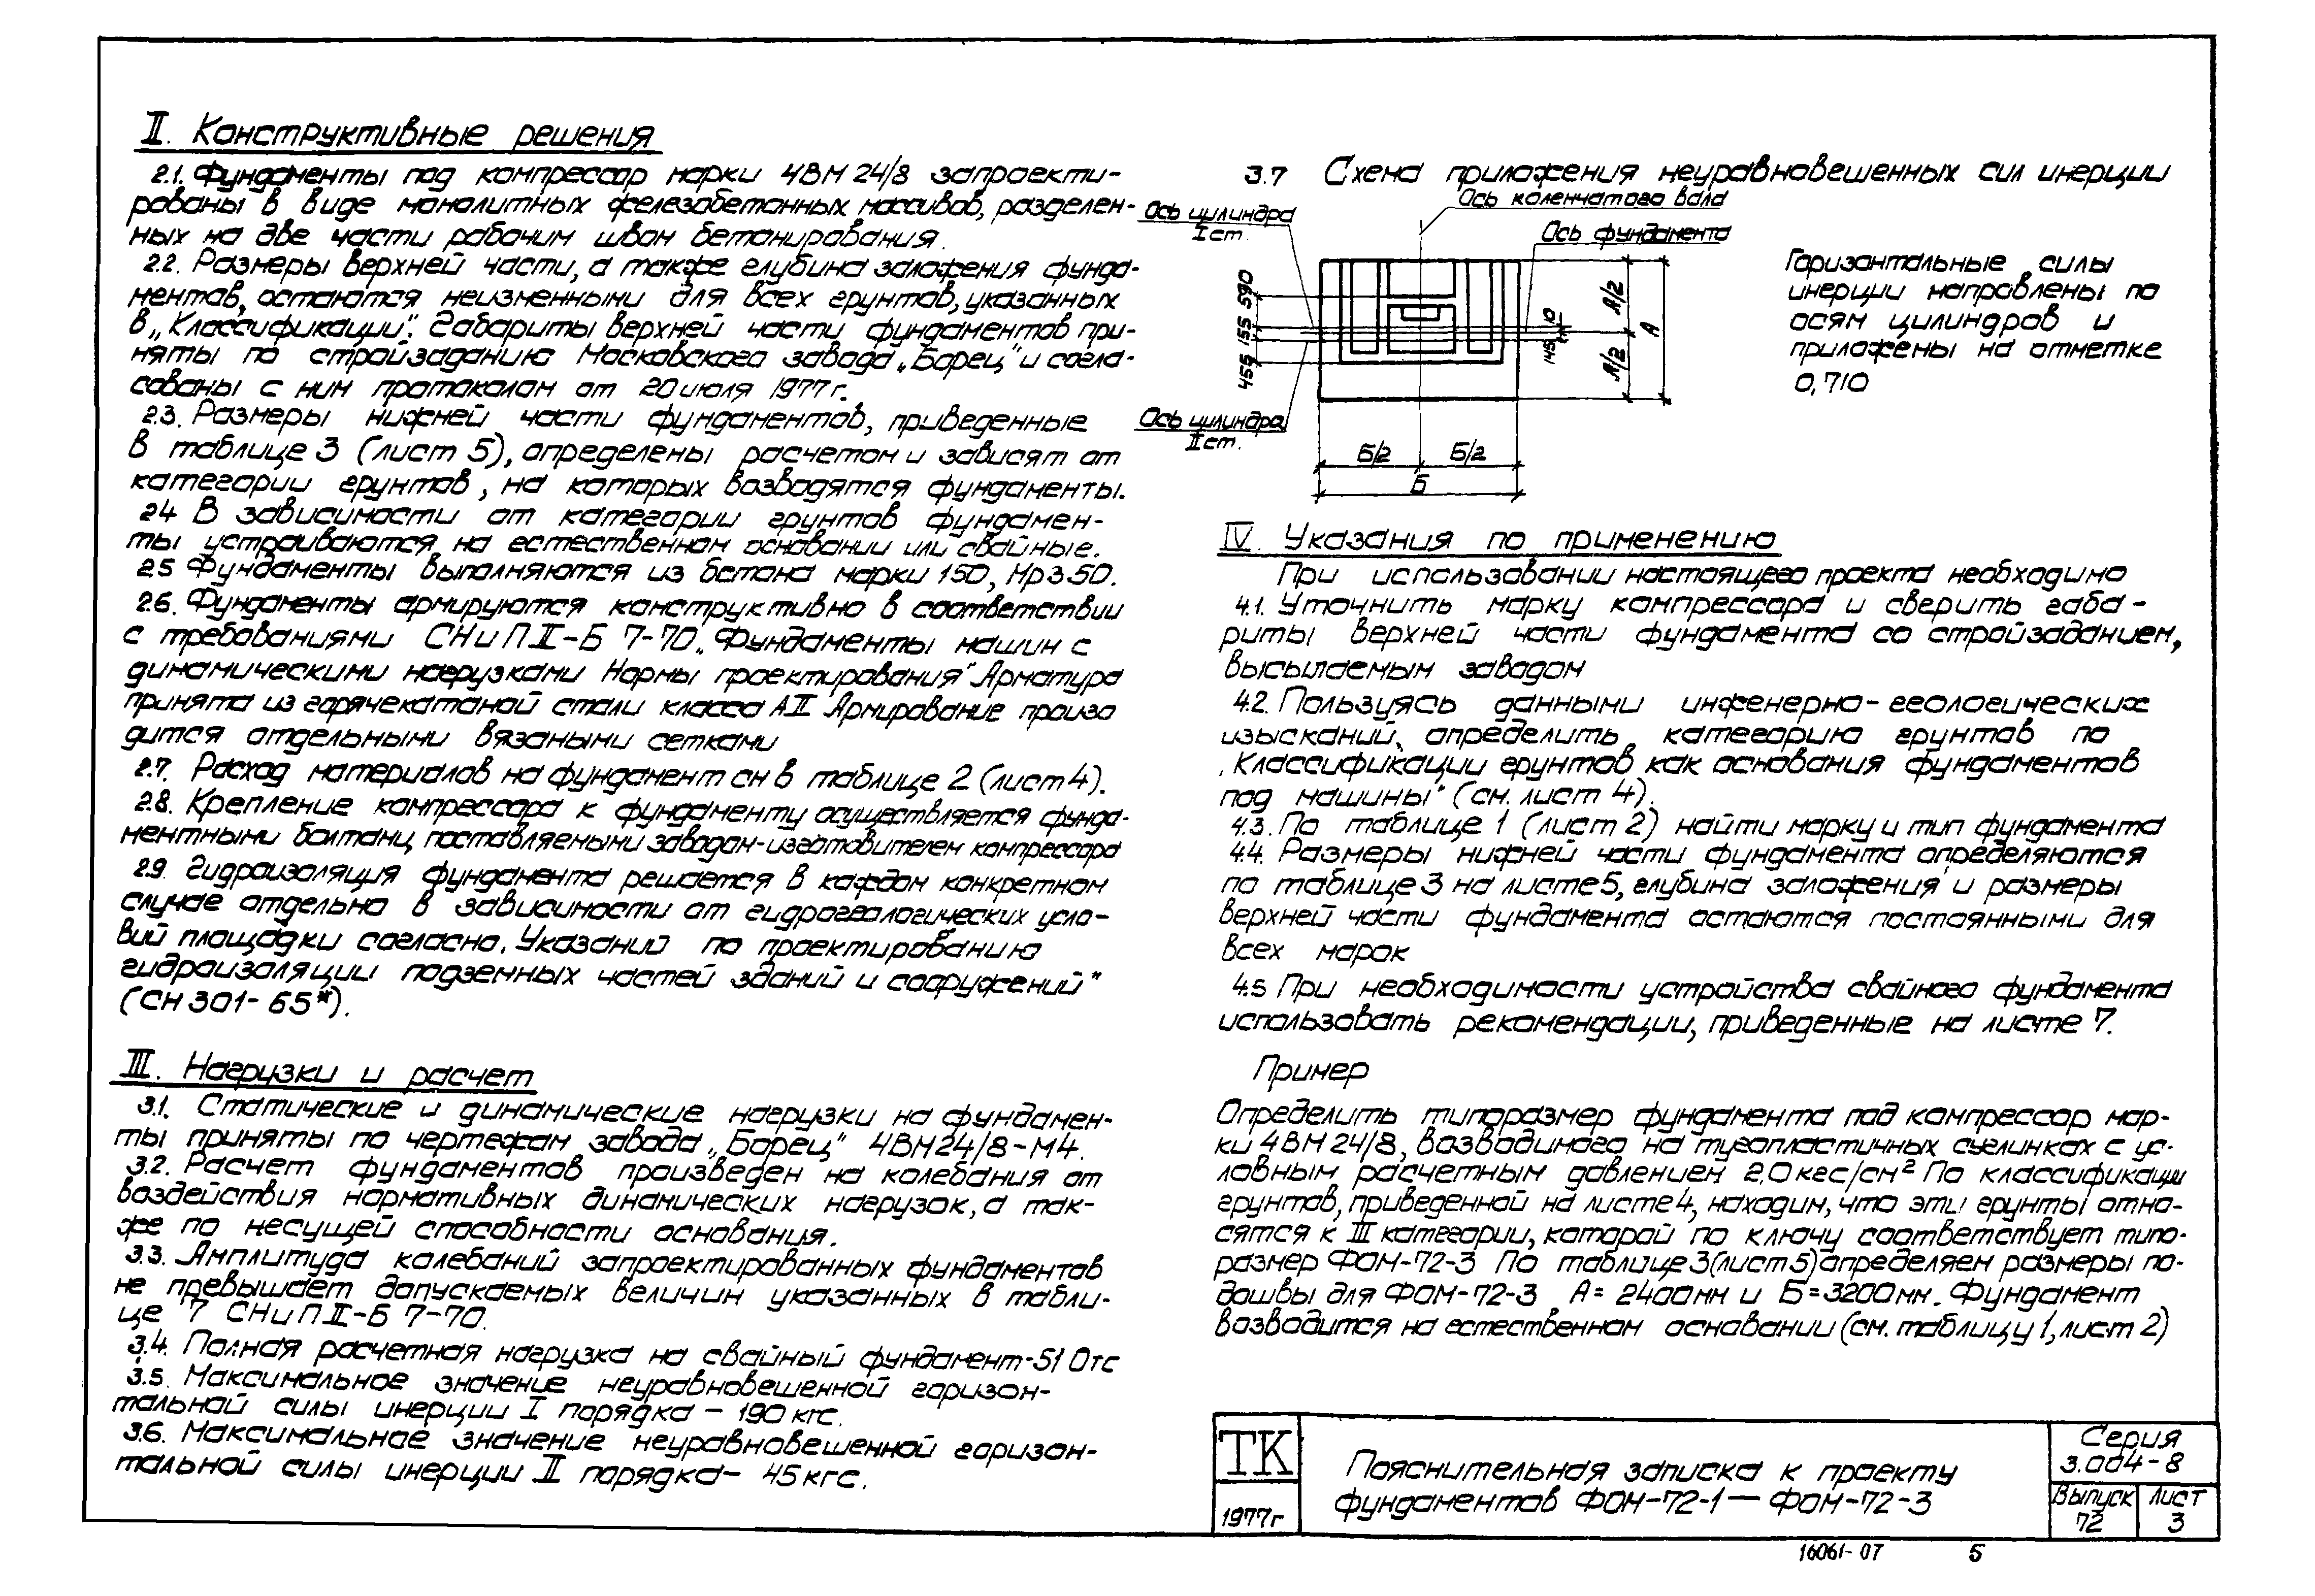 II. Конструктивные решения
2.1. Фундаменты под компрессор марки 4ВМ 24/8 запроекти-
рованы в виде монолитных железобетонных массивов, разделен-
ных на две части рабочим швом бетонирования.
2.2. Размеры верхней части, а также глубина заложения фунда-
ментов, остаются неизменными для всех грунтов, указанных
в „Классификации". Габариты верхней части фундаментов при-
няты по стройзаданию Московского завода „Борец" и согла-
сованы с ним протоколом от 20 июля 1977 г.
2.3. Размеры нижней части фундаментов, приведенные
в таблице 3 (лист 5), определены расчетом и зависят от
категории грунтов, на которых возводятся фундаменты.
2.4 В зависимости от категории грунтов фундамен-
ты устраиваются на естественном основании или свайные.
2.5 Фундаменты выполняются из бетона марки 150, Мрз 50.
2.6. Фундаменты армируются конструктивно в соответствии
с требованиями СНиП II-Б 7-70 „Фундаменты машин с
динамическими нагрузками Нормы проектирования" Арматура
принята из горячекатаной стали класса АII Армирование произво
дится отдельными вязаными сетками
2.7. Расход материалов на фундамент см в таблице 2 (лист 4).
2.8. Крепление компрессора к фундаменту осуществляется фунда-
ментными болтами, поставляемыми заводом-изготовителем компрессора
2.9. Гидроизоляция фундамента решается в каждом конкретном
случае отдельно в зависимости от гидрогеологических усло-
вий площадки согласно „Указаний по проектированию
гидроизоляции подземных частей зданий и сооружений"
(СН 301-65*).
III. Нагрузки и расчет
3.1. Статические и динамические нагрузки на фундамен-
ты приняты по чертежам завода „Борец" 4ВМ24/8-М4.
3.2. Расчет фундаментов произведен на колебания от
воздействия нормативных динамических нагрузок, а так-
же по несущей способности основания.
3.3. Амплитуда колебаний запроектированных фундаментов
не превышает допускаемых величин указанных в табли-
це 7 СНиП II-Б 7-70.
3.4. Полная расчетная нагрузка на свайный фундамент-51 0тс
3.5. Максимальное значение неуравновешенной горизон-
тальной силы инерции I порядка - 190 кгс.
3.6. Максимальное значение неуравновешенной горизон-
тальной силы инерции II порядка - 45 кгс.
3.7 Схема приложения неуравновешенных сил инерции
Ось коленчатого вала
Ось цилиндра
I ст.
Ось фундамента
590
155
455
10
145
А/2
А/2
А
Ось цилиндра
II ст.
Б/2
Б/2
Б
Горизонтальные силы
инерции направлены по
осям цилиндров и
приложены на отметке
0,710
IV. Указания по применению
При использовании настоящего проекта необходимо
4.1. Уточнить марку компрессора и сверить габа-
риты верхней части фундамента со стройзаданием,
высылаемым заводом
4.2. Пользуясь данными инженерно-геологических
изысканий, определить категорию грунтов по
„Классификации грунтов как основания фундаментов
под машины" (см. лист 4).
4.3. По таблице 1 (лист 2) найти марку и тип фундамента
4.4. Размеры нижней части фундамента определяются
по таблице 3 на листе 5, глубина заложения и размеры
верхней части фундамента остаются постоянными для
всех марок
4.5 При необходимости устройства свайного фундамента
использовать рекомендации, приведенные на листе 7.
Пример
Определить типоразмер фундамента под компрессор мар-
ки 4ВМ 24/8, возводимого на тугопластичных суглинках с ус-
ловным расчетным давлением 2,0 кгс/см² По классификации
грунтов, приведенной на листе 4, находим, что эти грунты отно-
сятся к III категории, которой по ключу соответствует типо-
размер ФОМ-72-3 По таблице 3 (лист 5) определяем размеры по-
дошвы для ФОМ-72-3 А= 2400мм и Б=3200мм. Фундамент
возводится на естественном основании (см. таблицу 1, лист 2)
ТК
1977г
Пояснительная записка к проекту
фундаментов ФОМ-72-1 — ФОМ-72-3
Серия
3.004-8
Выпуск
72
Лист
3
16061-07 5